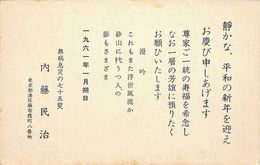 静かな、平和の新年を迎え
お慶び申しあげます
尊家ご一統の寿福を希念し
なお一層の芳誼に預りたく
お願いいたします
漫吟
これもまた浮世風流か
砂山に杙うつ人の
影もさまざま
一九六一年一月朔日
無病息災の七十五叟
内藤民治
東京都港区麻布霞町八番地